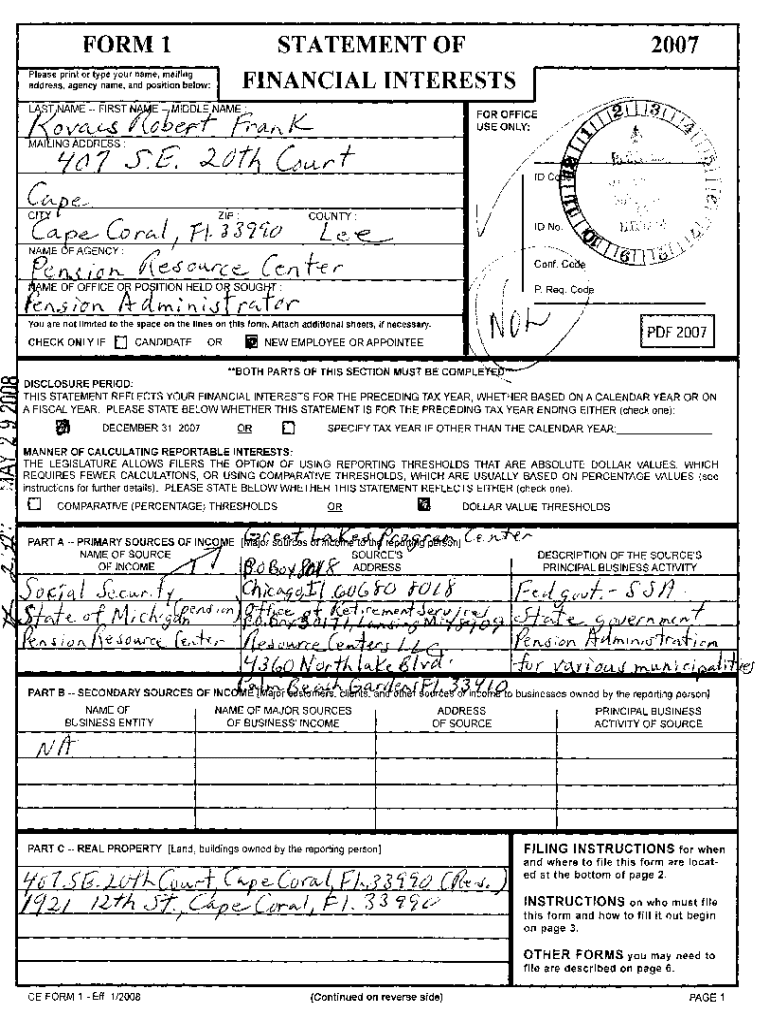 FORM 1
STATEMENT OF
2007
Please print or type your name, mailing
address, agency name, and position below:
FINANCIAL INTERESTS
LAST NAME -- FIRST NAME -- MIDDLE NAME :
Kovacs Robert Frank
MAILING ADDRESS :
407 S.E. 20th Court
Cape
CITY : ZIP : COUNTY :
Cape Coral, Fl. 33990 Lee
NAME OF AGENCY :
Pension Resource Center
NAME OF OFFICE OR POSITION HELD OR SOUGHT :
Pension Administrator
You are not limited to the space on the lines on this form. Attach additional sheets, if necessary.
CHECK ONLY IF CANDIDATE OR NEW EMPLOYEE OR APPOINTEE
FOR OFFICE
USE ONLY:
ID Code
ID No.
Conf. Code
P. Req. Code
PDF 2007
MAY 29 2008
**BOTH PARTS OF THIS SECTION MUST BE COMPLETED**
DISCLOSURE PERIOD:
THIS STATEMENT REFLECTS YOUR FINANCIAL INTERESTS FOR THE PRECEDING TAX YEAR, WHETHER BASED ON A CALENDAR YEAR OR ON
A FISCAL YEAR. PLEASE STATE BELOW WHETHER THIS STATEMENT IS FOR THE PRECEDING TAX YEAR ENDING EITHER (check one):
DECEMBER 31, 2007 OR SPECIFY TAX YEAR IF OTHER THAN THE CALENDAR YEAR:
MANNER OF CALCULATING REPORTABLE INTERESTS:
THE LEGISLATURE ALLOWS FILERS THE OPTION OF USING REPORTING THRESHOLDS THAT ARE ABSOLUTE DOLLAR VALUES, WHICH
REQUIRES FEWER CALCULATIONS, OR USING COMPARATIVE THRESHOLDS, WHICH ARE USUALLY BASED ON PERCENTAGE VALUES (see
instructions for further details). PLEASE STATE BELOW WHETHER THIS STATEMENT REFLECTS EITHER (check one):
COMPARATIVE (PERCENTAGE) THRESHOLDS OR DOLLAR VALUE THRESHOLDS
Great Lakes Program Center
PART A -- PRIMARY SOURCES OF INCOME [Major sources of income to the reporting person]
NAME OF SOURCE
OF INCOME
SOURCE'S
ADDRESS
DESCRIPTION OF THE SOURCE'S
PRINCIPAL BUSINESS ACTIVITY
P.O. Box 8018
Social Security Chicago, Il 60680 8018 Fed govt. - SSA
State of Michigan (pension) Office of Retirement Services State government
P.O. Box 30171, Lansing Mi 48909
Pension Resource Center Resource Centers LLC Pension Administration
4360 Northlake Blvd. for various municipalities
Palm Beach Gardens Fl. 33410
PART B -- SECONDARY SOURCES OF INCOME [Major customers, clients, and other sources of income to businesses owned by the reporting person]
NAME OF
BUSINESS ENTITY
NAME OF MAJOR SOURCES
OF BUSINESS' INCOME
ADDRESS
OF SOURCE
PRINCIPAL BUSINESS
ACTIVITY OF SOURCE
NA
PART C -- REAL PROPERTY [Land, buildings owned by the reporting person]
407 SE. 20th Court, Cape Coral, Fl. 33990 (Res.)
1921 12th St., Cape Coral, Fl. 33990
FILING INSTRUCTIONS for when
and where to file this form are locat-
ed at the bottom of page 2.
INSTRUCTIONS on who must file
this form and how to fill it out begin
on page 3.
OTHER FORMS you may need to
file are described on page 6.
CE FORM 1 - Eff. 1/2008
(Continued on reverse side)
PAGE 1